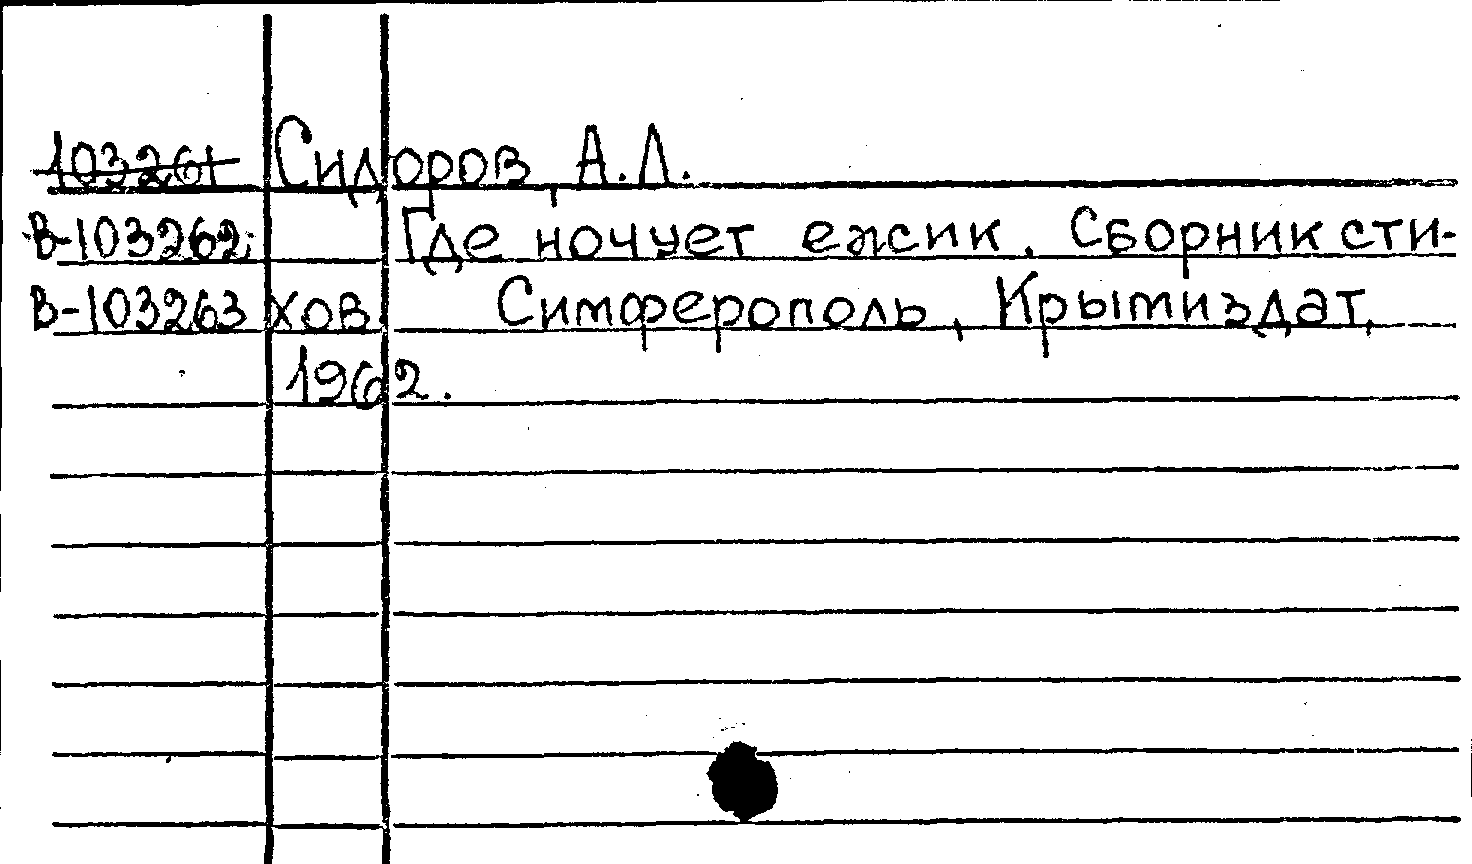 103261 Сидоров, А.Л.
В-103262; Где ночует ежик. Сборник сти-
В-103263 хов. Симферополь, Крымиздат,
1962.